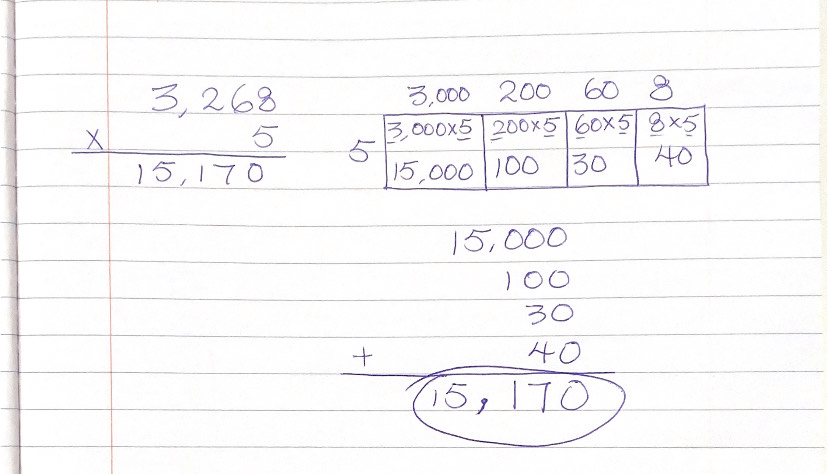 3,268
x 5
15,170
3,000 200 60 8
5
3,000x5 200x5 60x5 8x5
15,000 100 30 40
15,000
100
30
+ 40
15,170